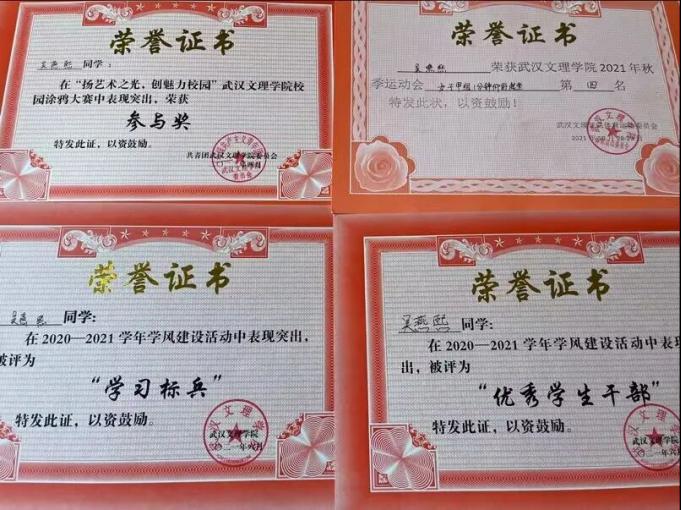 荣誉证书
吴燕熙 同学：
在“扬艺术之光，创魅力校园”武汉文理学院校
园涂鸦大赛中表现突出，荣获
参与奖
特发此证，以资鼓励。
共青团武汉文理学院委员会
荣誉证书
吴燕熙 荣获武汉文理学院 2021 年秋
季运动会 女子甲组1分钟仰卧起坐 第 四 名
特发此状，以资鼓励！
武汉文理学院体育运动委员会
荣誉证书
吴燕熙 同学：
在 2020—2021 学年学风建设活动中表现突出，
被评为
“学习标兵”
特发此证，以资鼓励。
武汉文理学院
二〇二一年六月
荣誉证书
吴燕熙 同学：
在 2020—2021 学年学风建设活动中表现
出，被评为
“优秀学生干部”
特发此证，以资鼓励。
武汉文理学院
二〇二一年六月